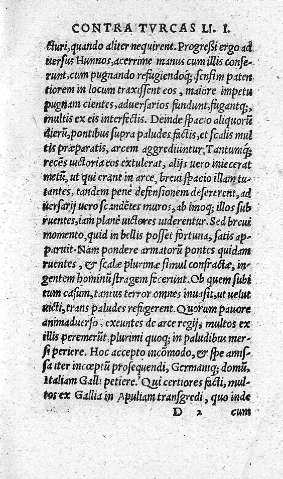 CONTRA TVRCAS LI. I.
cturi, quando aliter nequirent. Progressi ergo ad
uersus Hunnos, acerrime manus cum illis conse-
runt, cum pugnando refugiendoq́; sensim paten
tiorem in locum traxissent eos, maiore impetu
pugnam cientes, aduersarios fundunt, fugantq́;,
multis ex eis interfectis. Deinde spacio aliquorū
dierū, pontibus supra paludes factis, et scalis mul
tis præparatis, arcem aggrediuntur, Tantumq́;
recēs uictoria eos extulerat, alijs uero iniecerat
metū, ut qui erant in arce, breui spacio illam tu-
tantes, tandem pene defensionem desererent, ad
uersarij uero scandētes muros, ab imoq́; illos sub
ruentes, iam planè uictores uiderentur. Sed breui
momento, quid in bellis posset fortuna, satis ap-
paruit. Nam pondere armatorū pontes quidam
ruentes, & scalæ plurimæ simul confractæ, in-
gentem hominū stragem fecerunt. Ob quem subi
tum casum, tantus terror omnes inuasit, ut uelut
uicti, trans paludes refugerent. Quorum pauore
animaduerso, exeuntes de arce regij, multos ex
illis peremerūt. plurimi quoq́; in paludibus mer-
si periere. Hoc accepto incōmodo, & spe amis-
sa iter incœptū prosequendi, Germaniq́; domū,
Italiam Galli petiere. Qui certiores facti, mul-
tos ex Gallia in Apuliam transgredi, quo inde
D 2 cum